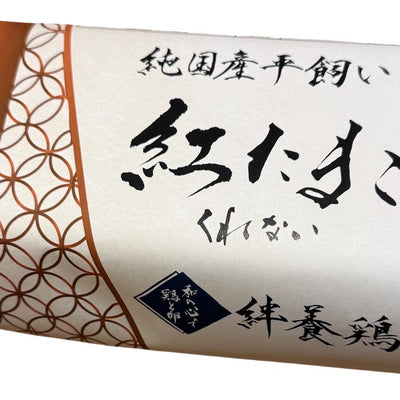 純国産平飼い
紅たまご
くれない
和の心で
鶏と卵
絆養鶏